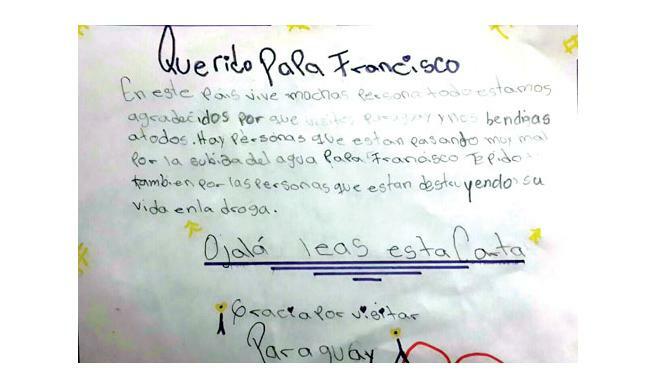 Querido Papa Francisco
En este Pais vive muchas Persona todo estamos
agradecidos por que visites Paraguay y nos bendigas
atodos. Hay Personas que estan pasando muy mal
por la subida del agua Papa Francisco Te Pido
tambien por las Personas que estan destuyendo su
vida enla droga.
Ojalá leas esta Carta
Gracia por visitar
Paraguay